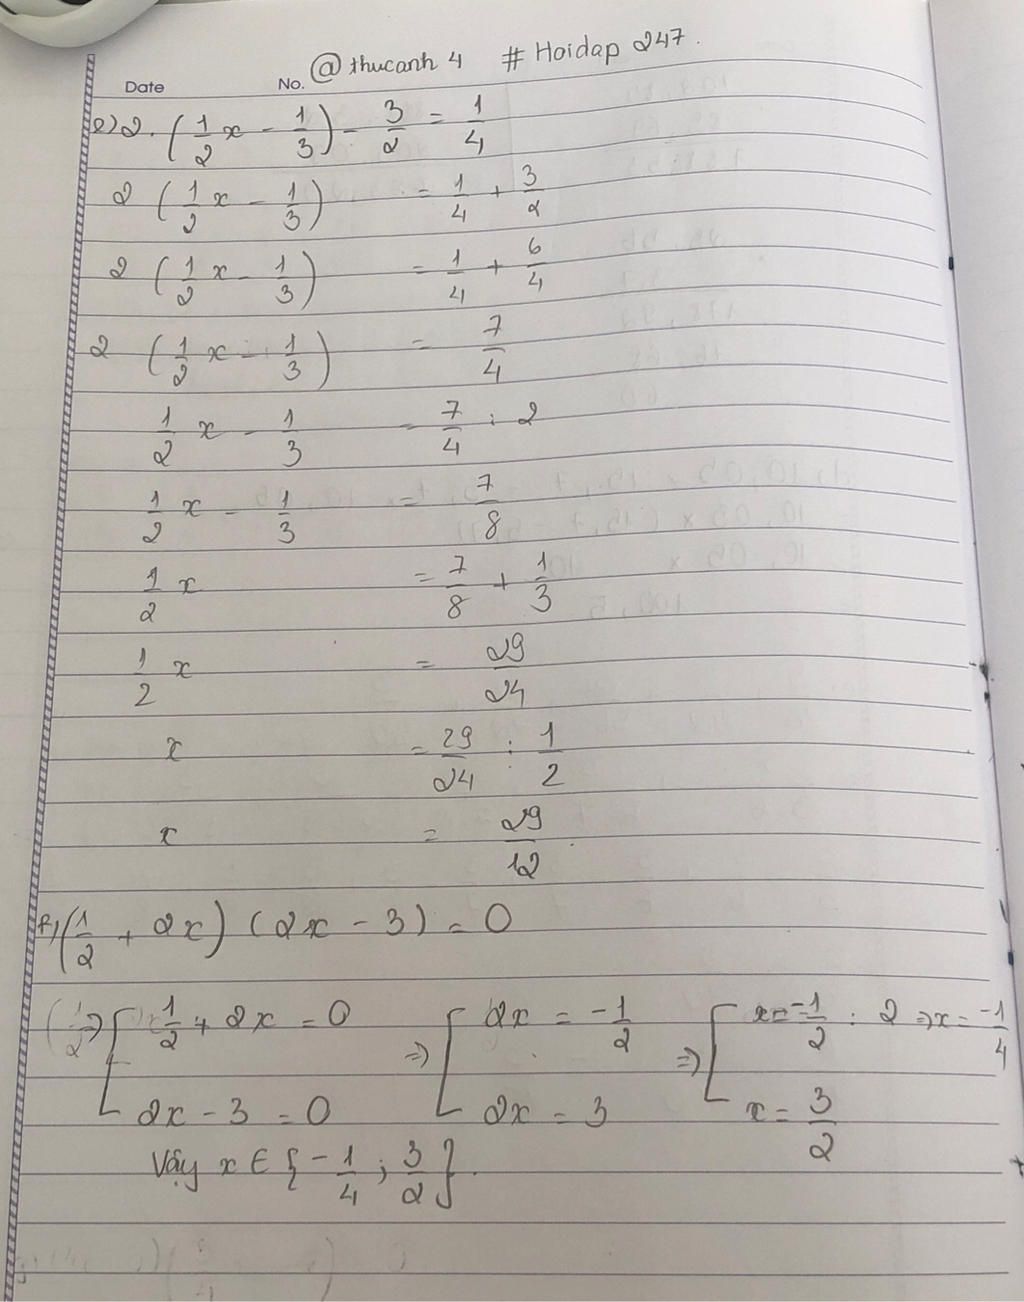 @ thucanh 4 # Hoidap 247.
Date No.
e) 2. (1/2 x - 1/3) - 3/2 = 1/4
2 (1/2 x - 1/3) = 1/4 + 3/2
2 (1/2 x - 1/3) = 1/4 + 6/4
2 (1/2 x - 1/3) = 7/4
1/2 x - 1/3 = 7/4 : 2
1/2 x - 1/3 = 7/8
1/2 x = 7/8 + 1/3
1/2 x = 29/24
x = 29/24 : 1/2
x = 29/12
f) (1/2 + 2x) (2x - 3) = 0
=> [ 1/2 + 2x = 0 => [ 2x = -1/2 => [ x = -1/2 : 2 => x = -1/4
2x - 3 = 0 2x = 3 x = 3/2
Vậy x ∈ {-1/4 ; 3/2}.